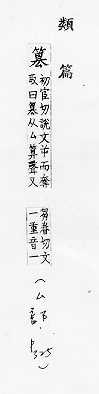 類篇
篡
初宦切說文屰而奪
取曰篡从厶算聲又
芻眷切文
一重音一
(厶部.
p325)